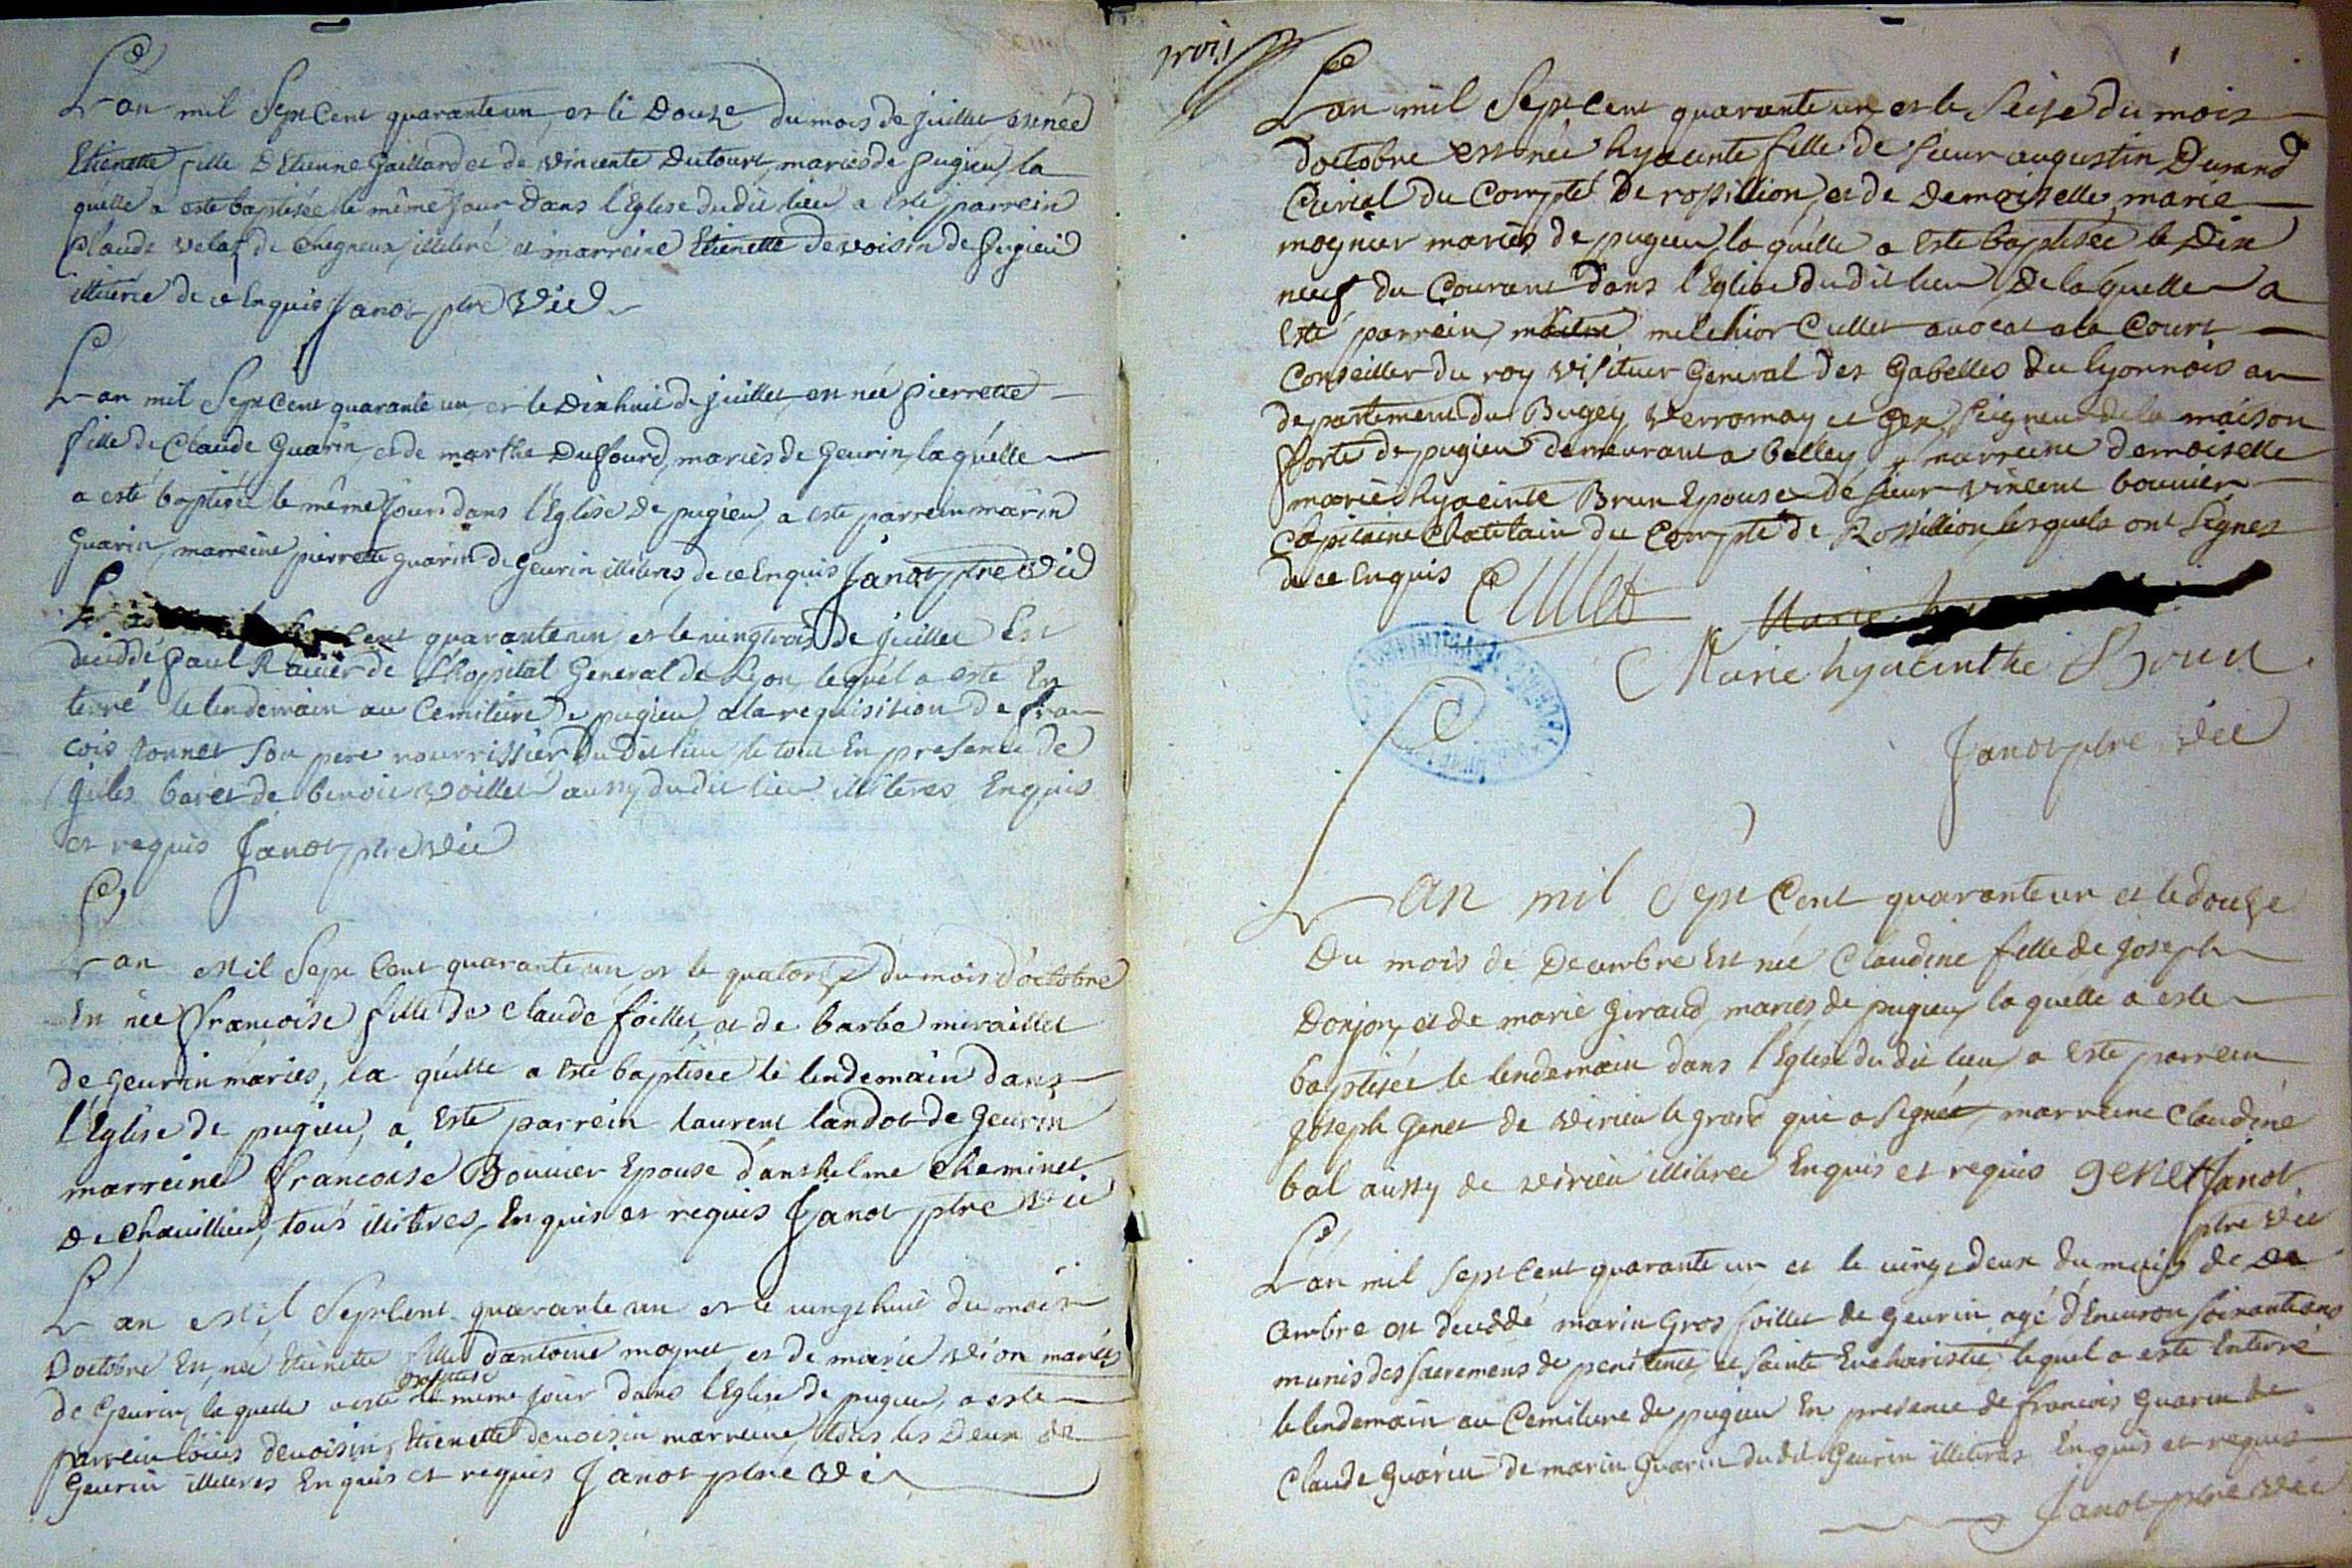 L'an mil Sept Cent quarante un et le Douze du mois de juillet est née
Etienette fille D'Etienne Gaillard et de Vincente Dutour, mariés de pugieu, la
quelle a esté baptisée le même jour dans l'Eglise du dit lieu a esté parrein
Claude velaz de Chegneux, illiteré et marreine Etienette devoisin de pugieu
illiterée de ce Enquis Janot ptre Vic
L'an mil Sept Cent quarante un et le Dixhuit de juillet est née pierrette
fille de Claude Guarin, et de marthe Dufourd, mariés de Geurin, la quelle
a esté baptisée le même jour dans l'Eglise de pugieu, a esté parrein marin
Guarin, marreine pierrette guarin de Geurin illiteres, de ce Enquis Janot ptre Vic
Cent quarante un et le vingtrois de juillet Est
deceddé paul Ravier de L'hopital General de Lyon, lequel a esté En
terré le lendemain au Cemitiere de pugieu, a la requisition de fran
cois Jonnet Son pere nourrissier du Dit lieu le tout En presence de
giles baret de benoit voillet aussy du dit lieu illiteres Enquis
et requis Janot ptre Vic
L'an Mil Sept Cent quarante un, et le quatorze du mois d'octobre
En née francoise fille de Claude foillet, et de barbe miraillet
de geurin mariés, la quelle a esté baptisée le lendemain dans
l'Eglise de pugieu, a Esté parrein laurent landot de Geurin
marreine francoise Bouvier Epouse d'anthelme Cheminet
de Chavillieu, tous illiteres, Enquis et requis Janot ptre Vic
L'an Mil Sept Cent quarante un et le vingthuit du mois
D'octobre Est née Etienette fille d'antoine moynet et de marie vion mariés
baptisé
de Geurin, la quelle a esté le meme jour dans l'Eglise de pugieu, a esté
parrein louis devoisin, Etienette devoisin marreine, tous les Deux de
Geurin illiteres Enquis et requis Janot ptre Vic
trois
L'an mil Sept Cent quarante un et le Seise du mois
d'octobre est née hyacinte fille de Sieur augustin Durand
Curial du Compté de rossillion, et de Demoiselle marie
mognier mariés de pugieu, la quelle a esté baptisée le Dix
neuf du Courant dans l'Eglise du dit lieu De laquelle a
Esté parrein, maitre melchior Cullet avocat a la Court
Conseiller du roy visiteur General des Gabelles du lyonnois au
departement du Bugey, Verromay et Gex, Seigneur de la maison
forte de pugieu demeurant a belley, et marreine demoiselle
marie hyacinte Brun Epouse de Sieur vincent bouvier
Capitaine Chatelain du Compté de Rossillion, lesquels ont Signés
de ce Enquis Cullet Marie
Marie hyacinthe Brun
Janot ptre Vic
L'an mil Sept Cent quarante un et le douze
Du mois de Decembre Est née Claudine fille de Joseph
Donjon, et de marie Giraud, mariés de pugieu, la quelle a esté
baptisée le lendemain dans l'Eglise du dit lieu a esté parrein
Joseph Genet de Virieu le grand qui a Signé, marreine Claudine
bal aussy de virieu illiterée Enquis et requis genet Janot
ptre Vic
L'an mil Sept Cent quarante un et le vingt deux du mois de De
cembre est deceddé marin Gros foillet de Geurin agé d'Environ Soixante ans
munis des Sacremens de penitence et Sainte Eucharistie, lequel a esté Enterré
le lendemain au Cemitiere de pugieu En presence de francois Guarin de
Claude Guarin de marin Guarin du dit Geurin illiteres Enquis et requis
Janot ptre Vic